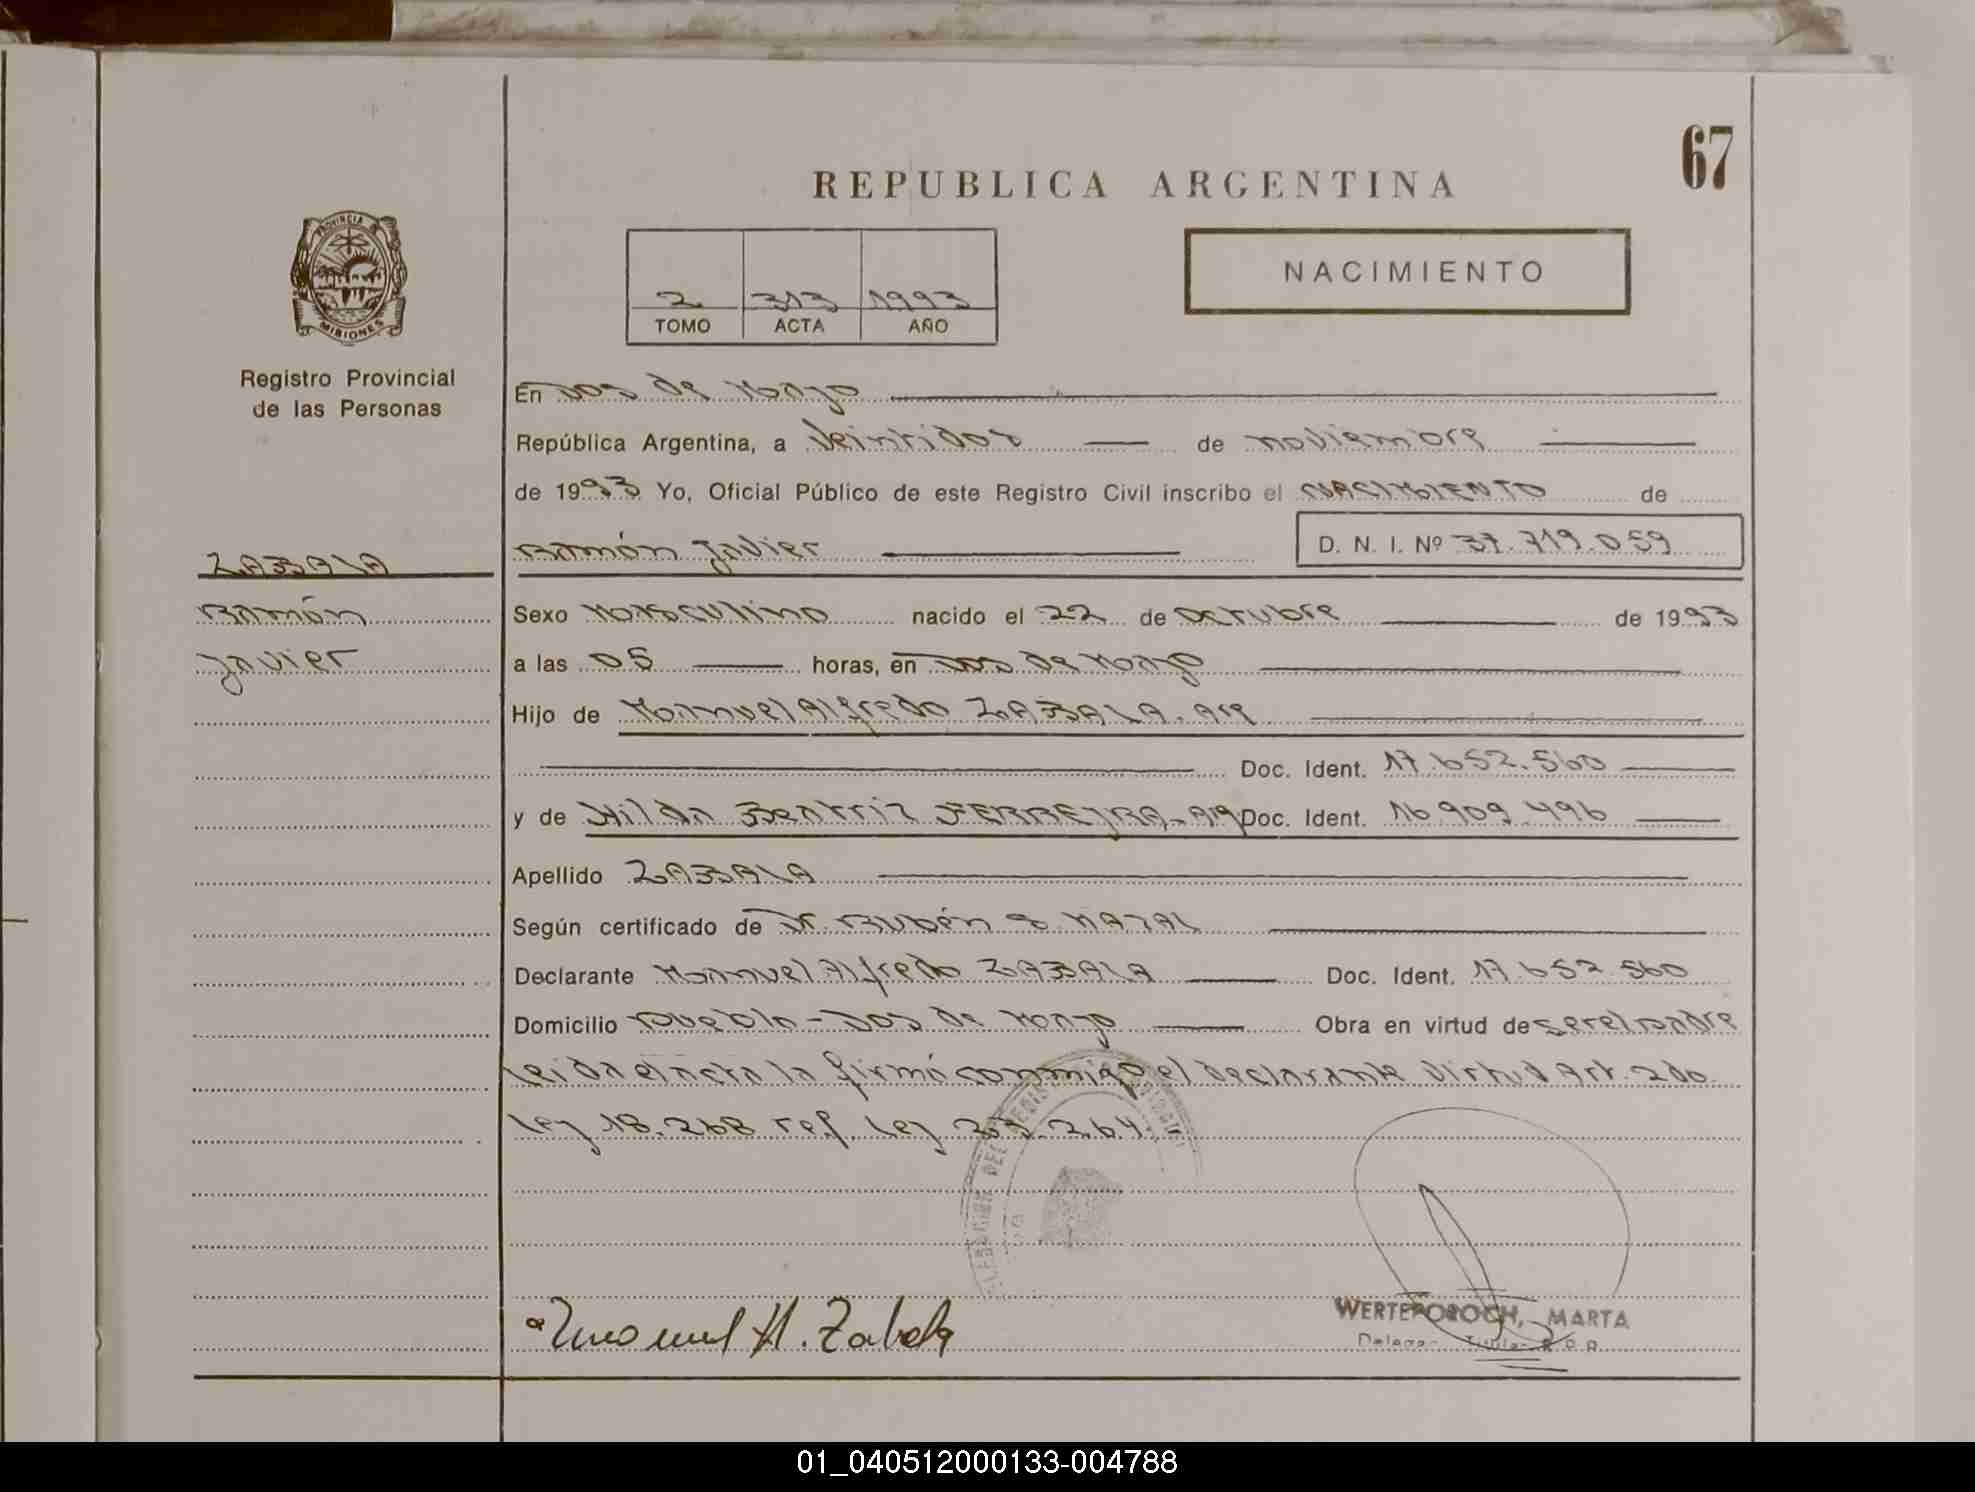 67
REPUBLICA ARGENTINA
PROVINCIA DE
MISIONES
Registro Provincial
de las Personas
2 313 1993
TOMO ACTA AÑO
NACIMIENTO
En Dos de Mayo
República Argentina, a Veintidos de noviembre
de 1993 Yo, Oficial Público de este Registro Civil inscribo el NACIMIENTO de
ZABALA
Ramón Javier D. N. I. Nº 37.719.059
Ramón
Sexo Masculino nacido el 22 de Octubre de 1993
Javier
a las 05 horas, en Dos de Mayo
Hijo de Manuel Alfredo ZABALA. Arg
Doc. Ident. 17.652.560
y de Hilda Beatriz FERREYRA-Arg Doc. Ident. 16.909.496
Apellido ZABALA
Según certificado de Dr. Rubén
Declarante Manuel Alfredo ZABALA Doc. Ident. 17.652.560
Domicilio Pueblo - Dos de Mayo Obra en virtud de ser el padre
Leida el acta la firmó conmigo el declarante virtud Art. 2do
Ley 18.268 ref. Ley
Manuel A. Zabala
WERTEPOROCH, MARTA
Titular R.P.P.
01_040512000133-004788